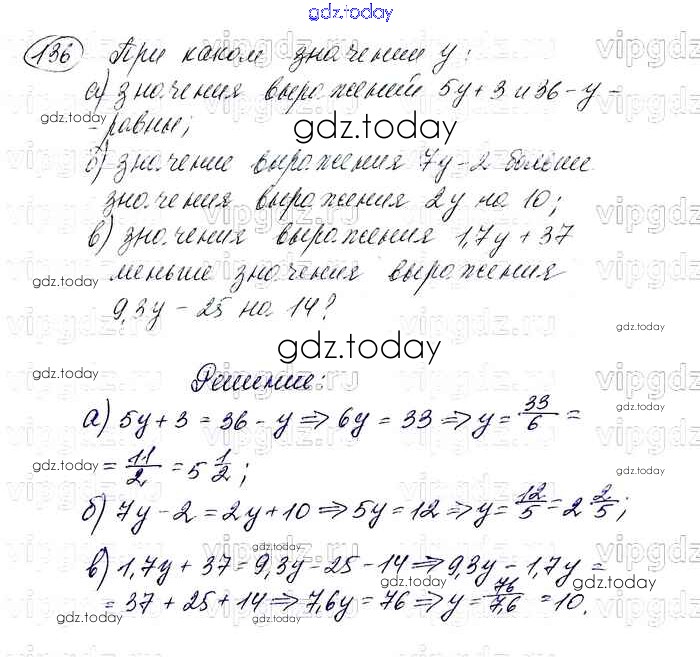 gdz.today
136 При каком значении y:
а) значения выражений 5y+3 и 36-y -
- равны;
gdz.today
б) значение выражения 7y-2 больше
значения выражения 2y на 10;
в) значения выражения 1,7y + 37
gdz.today
меньше значения выражения
9,3y - 25 на 14?
gdz.today
gdz.today
gdz.today
Решение:
а) 5y+3 = 36 - y ⇒ 6y = 33 ⇒ y = 33/6 =
gdz.today
= 11/2 = 5 1/2;
gdz.today
б) 7y - 2 = 2y + 10 ⇒ 5y = 12 ⇒ y = 12/5 = 2 2/5;
gdz.today
в) 1,7y + 37 = 9,3y - 25 - 14 ⇒ 9,3y - 1,7y =
gdz.today
= 37 + 25 + 14 ⇒ 7,6y = 76 ⇒ y = 76/7,6 = 10.